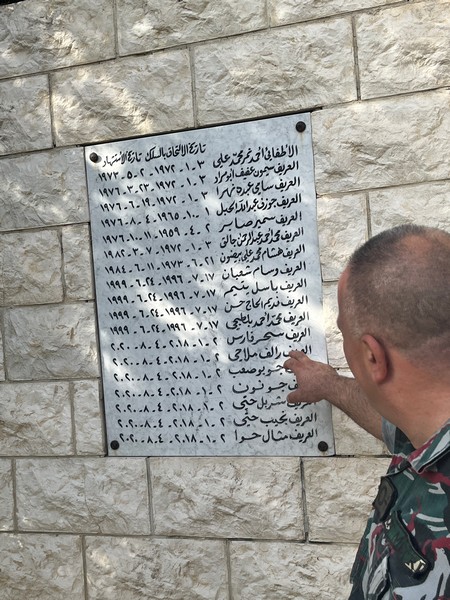 تاريخ الالتحاق بالسلك تاريخ الاستشهاد
الاطفائي احمد نمر محمد علي ٣-١-١٩٧٢ ٢-٥-١٩٧٣
العريف سيمون عفيف ابو مراد ٣-١-١٩٧٢ ٢٣-٣-١٩٧٦
العريف سامي عبده نهرا ٣-١-١٩٧٢ ١٩-٦-١٩٧٦
العريف جوزف عبدالله الجبل ١-١-١٩٦٥ ٤-٨-١٩٧٦
العريف سمير صابر ٢-٤-١٩٥٩ ١١-١٠-١٩٧٦
العريف محمد احمد عبد الرحمن جالق ٣-١-١٩٧٢ ٧-٣-١٩٨٢
العريف هشام محمد علي بيضون ٢١-٦-١٩٧٣ ١١-٦-١٩٨٤
العريف وسام شعبان ١٧-٧-١٩٩٦ ٢٤-٦-١٩٩٩
العريف باسل يتيم ١٧-٧-١٩٩٦ ٢٤-٦-١٩٩٩
العريف نديم الحاج حسن ١٧-٧-١٩٩٦ ٢٤-٦-١٩٩٩
العريف محمد احمد بلطجي ١٧-٧-١٩٩٦ ٢٤-٦-١٩٩٩
العريف سحر فارس ٢-١-٢٠١٨ ٤-٨-٢٠٢٠
العريف رالف ملاحي ٢-١-٢٠١٨ ٤-٨-٢٠٢٠
جو بو صعب ٢-١-٢٠١٨ ٤-٨-٢٠٢٠
جو نون ٢-١-٢٠١٨ ٤-٨-٢٠٢٠
العريف شربل حتي ٢-١-٢٠١٨ ٤-٨-٢٠٢٠
العريف نجيب حتي ٢-١-٢٠١٨ ٤-٨-٢٠٢٠
العريف مثال حوا ٢-١-٢٠١٨ ٤-٨-٢٠٢٠